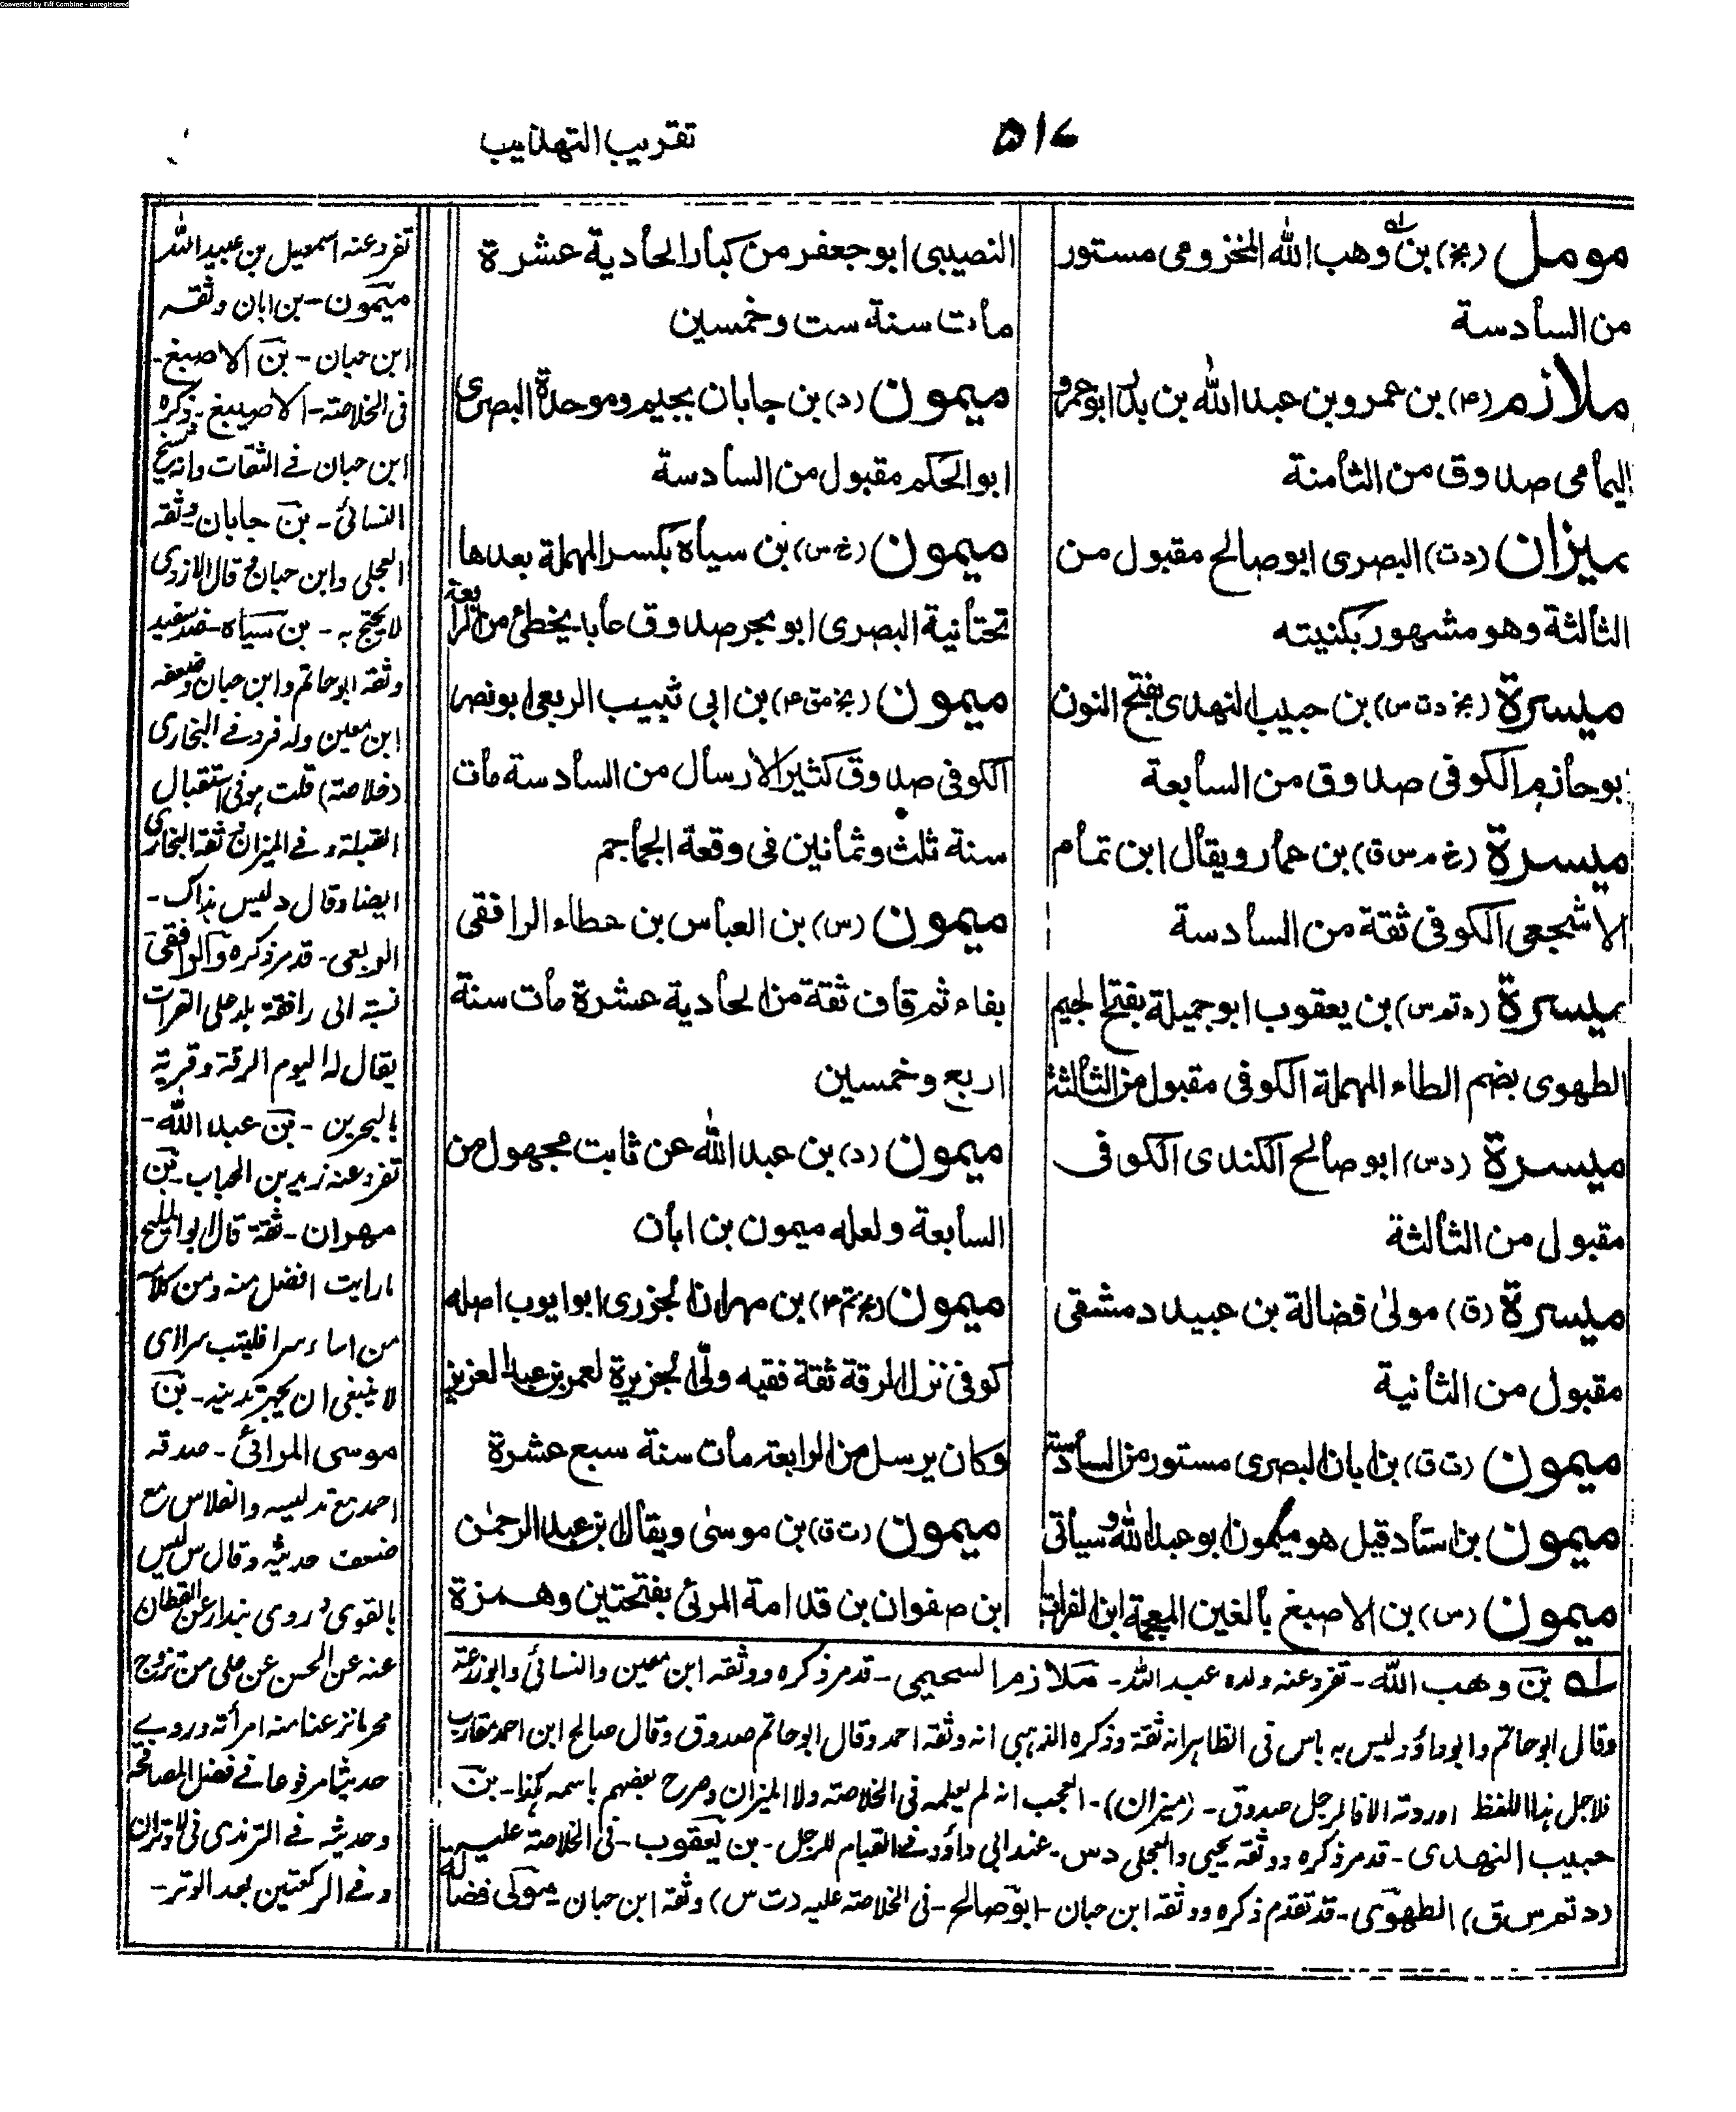 Converted by Tiff Combine - unregistered
٥١٧
تقريب التهذيب
مومل (بخ) بن وهب الله المخزومى مستور
من السادسة
ملازم (٤) بن عمرو بن عبدالله بن بدر ابو عمرو
اليمامى صدوق من الثامنة
ميزان (دت) البصرى ابو صالح مقبول من
الثالثة وهو مشهور بكنيته
ميسرة (بخ دت س) بن حبيب النهدى بفتح النون
بو حازم الكوفى صدوق من السابعة
ميسرة (خ م س ق) بن عمار ويقال ابن تمام
الاشجعى الكوفى ثقة من السادسة
ميسرة (د تم س) بن يعقوب ابو جميلة بفتح الجيم
الطهوى بضم الطاء المهملة الكوفى مقبول من الثالثة
ميسرة (دس) ابو صالح الكندى الكوفى
مقبول من الثالثة
ميسرة (ق) مولى فضالة بن عبيد دمشقى
مقبول من الثانية
ميمون (ت ق) بن ابان البصرى مستور من السادسة
ميمون بن استاد قيل هو ميمون ابو عبدالله وسياتى
ميمون (س) بن الاصبغ بالغين المعجمة ابن الفرات
النصيبى ابو جعفر من كبار الحادية عشرة
مات سنة ست وخمسين
ميمون (د) بن جابان بجيم وموحدة البصرى
ابو الحكم مقبول من السادسة
ميمون (خ س) بن سياه بكسر المهملة بعدها
تحتانية البصرى ابو بحر صدوق عابد يخطئ من الرابعة
ميمون (بخ مق ٤) بن ابى شبيب الربعى ابو نصر
الكوفى صدوق كثير الارسال من السادسة مات
سنة ثلث وثمانين فى وقعة الجماجم
ميمون (س) بن العباس بن عطاء الرافقى
بفاء ثم قاف ثقة من الحادية عشرة مات سنة
اربع وخمسين
ميمون (د) بن عبد الله عن ثابت مجهول من
السابعة ولعله ميمون بن ابان
ميمون (بخ م ٤) بن مهران الجزرى ابو ايوب اصله
كوفى نزل الرقة ثقة فقيه ولى الجزيرة لعمر بن عبد العزيز
وكان يرسل من الرابعة مات سنة سبع عشرة
ميمون (ت ق) بن موسى ويقال بن عبد الرحمن
ابن صفوان بن قدامة المرئى بفتحتين وهمزة
له بن وهب الله - تفرد عنه ولده عبيد الله - ملازم السحيمى - قد مر ذكره ووثقه ابن معين والنسائى وابو زرعة
وقال ابو حاتم وابو داؤد ليس به باس فى الظاهر انه ثقة وذكره الذهبى انه وثقه احمد وقال ابو حاتم صدوق وقال صالح ابن احمد مقارب
فلاجل هذا اللفظ اوردته الا فالرجل صدوق - (ميزان) - العجب انه لم يعلمه فى الخلاصة ولا الميزان وصرح بعضهم باسمه كذا - بن
حبيب النهدى - قد مر ذكره ووثقه يحيى والعجلى دس - عند ابى داؤد فى القيام للرجل - بن يعقوب - فى الخلاصة عليه
(د تم س ق) الطهوى - قد تقدم ذكره ووثقه ابن حبان - ابو صالح - فى الخلاصة عليه (دت س) وثقه ابن حبان - مولى فضالة
تفرد عنه اسمعيل بن عبيد الله
ميمون - بن ابان وثقه
ابن حبان - بن الاصبغ -
فى الخلاصة - الاصيبغ - ذكره
ابن حبان فى الثقات وانه شيخ
النسائى - بن جابان وثقه
العجلى وابن حبان قال الازدى
لا يحتج به - بن سياه - ضد سفيد
وثقه ابو حاتم وابن حبان وضعفه
ابن معين وله فرد فى البخارى
(خلاصة) قلت هو فى استقبال
القبلة وفى الميزان ثقه البخارى
ايضا وقال د ليس بذاك -
الربعى - قد مر ذكره والرافقى
نسبة الى رافقة بلد على الفرات
يقال له اليوم الرقة وقرية
بالبحرين - بن عبد الله -
تفرد عنه زيد بن الحباب - بن
مهران - ثقة قال ابو المليح
ما رايت افضل منه ومن كلامه
من اساء سرا فليتب سرا اى
لا ينبغى ان يجهر - بن
موسى المرائى - صدقه
احمد مع تدليسه والفلاس مع
ضعف حديثه وقال س ليس
بالقوى وروى بندار عن القطان
عنه عن الحسن عن على من تزوج
عنا منه امرأته وروى
حديثا مرفوعا فى فضل المصافحة
وحديثه فى الترمذى فى الوتر
وفى الركعتين بعد الوتر -